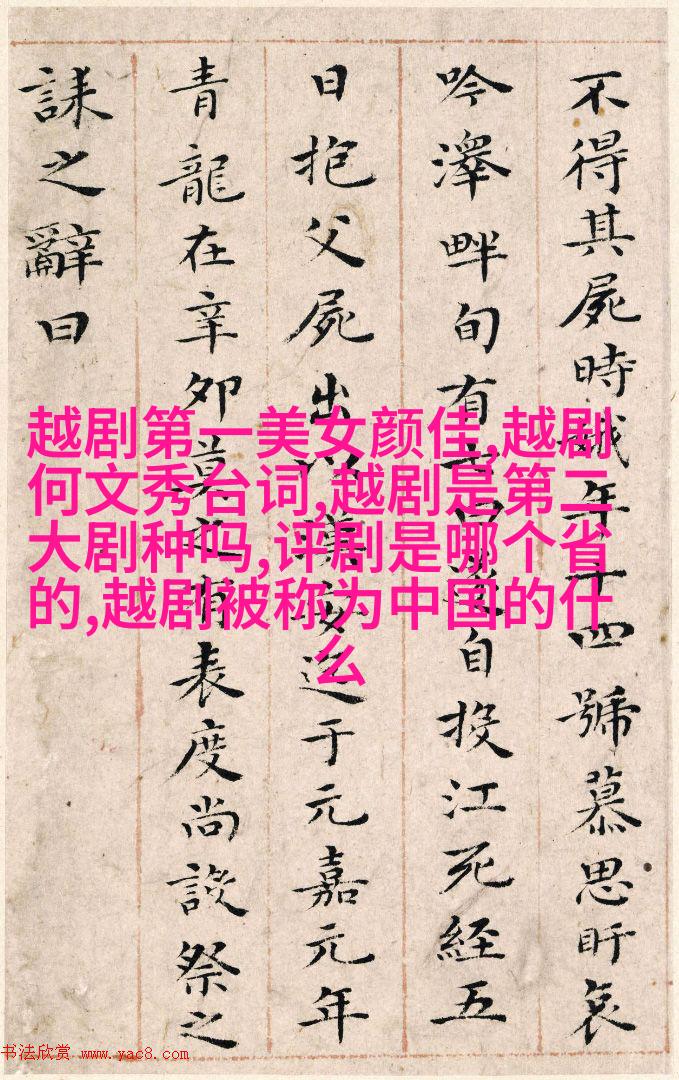 不得其屍時娥年十四號慕思盱哀
吟澤畔旬有七日遂自投江死經五
日抱父屍出以漢安迄于元嘉元年
青龍在辛卯莫之有表度尚設祭之
誄之辭曰
越剧第一美女颜佳,越剧
何文秀台词,越剧是第二
大剧种吗,评剧是哪个省
的,越剧被称为中国的什
么
书法欣赏 www.yac8.com